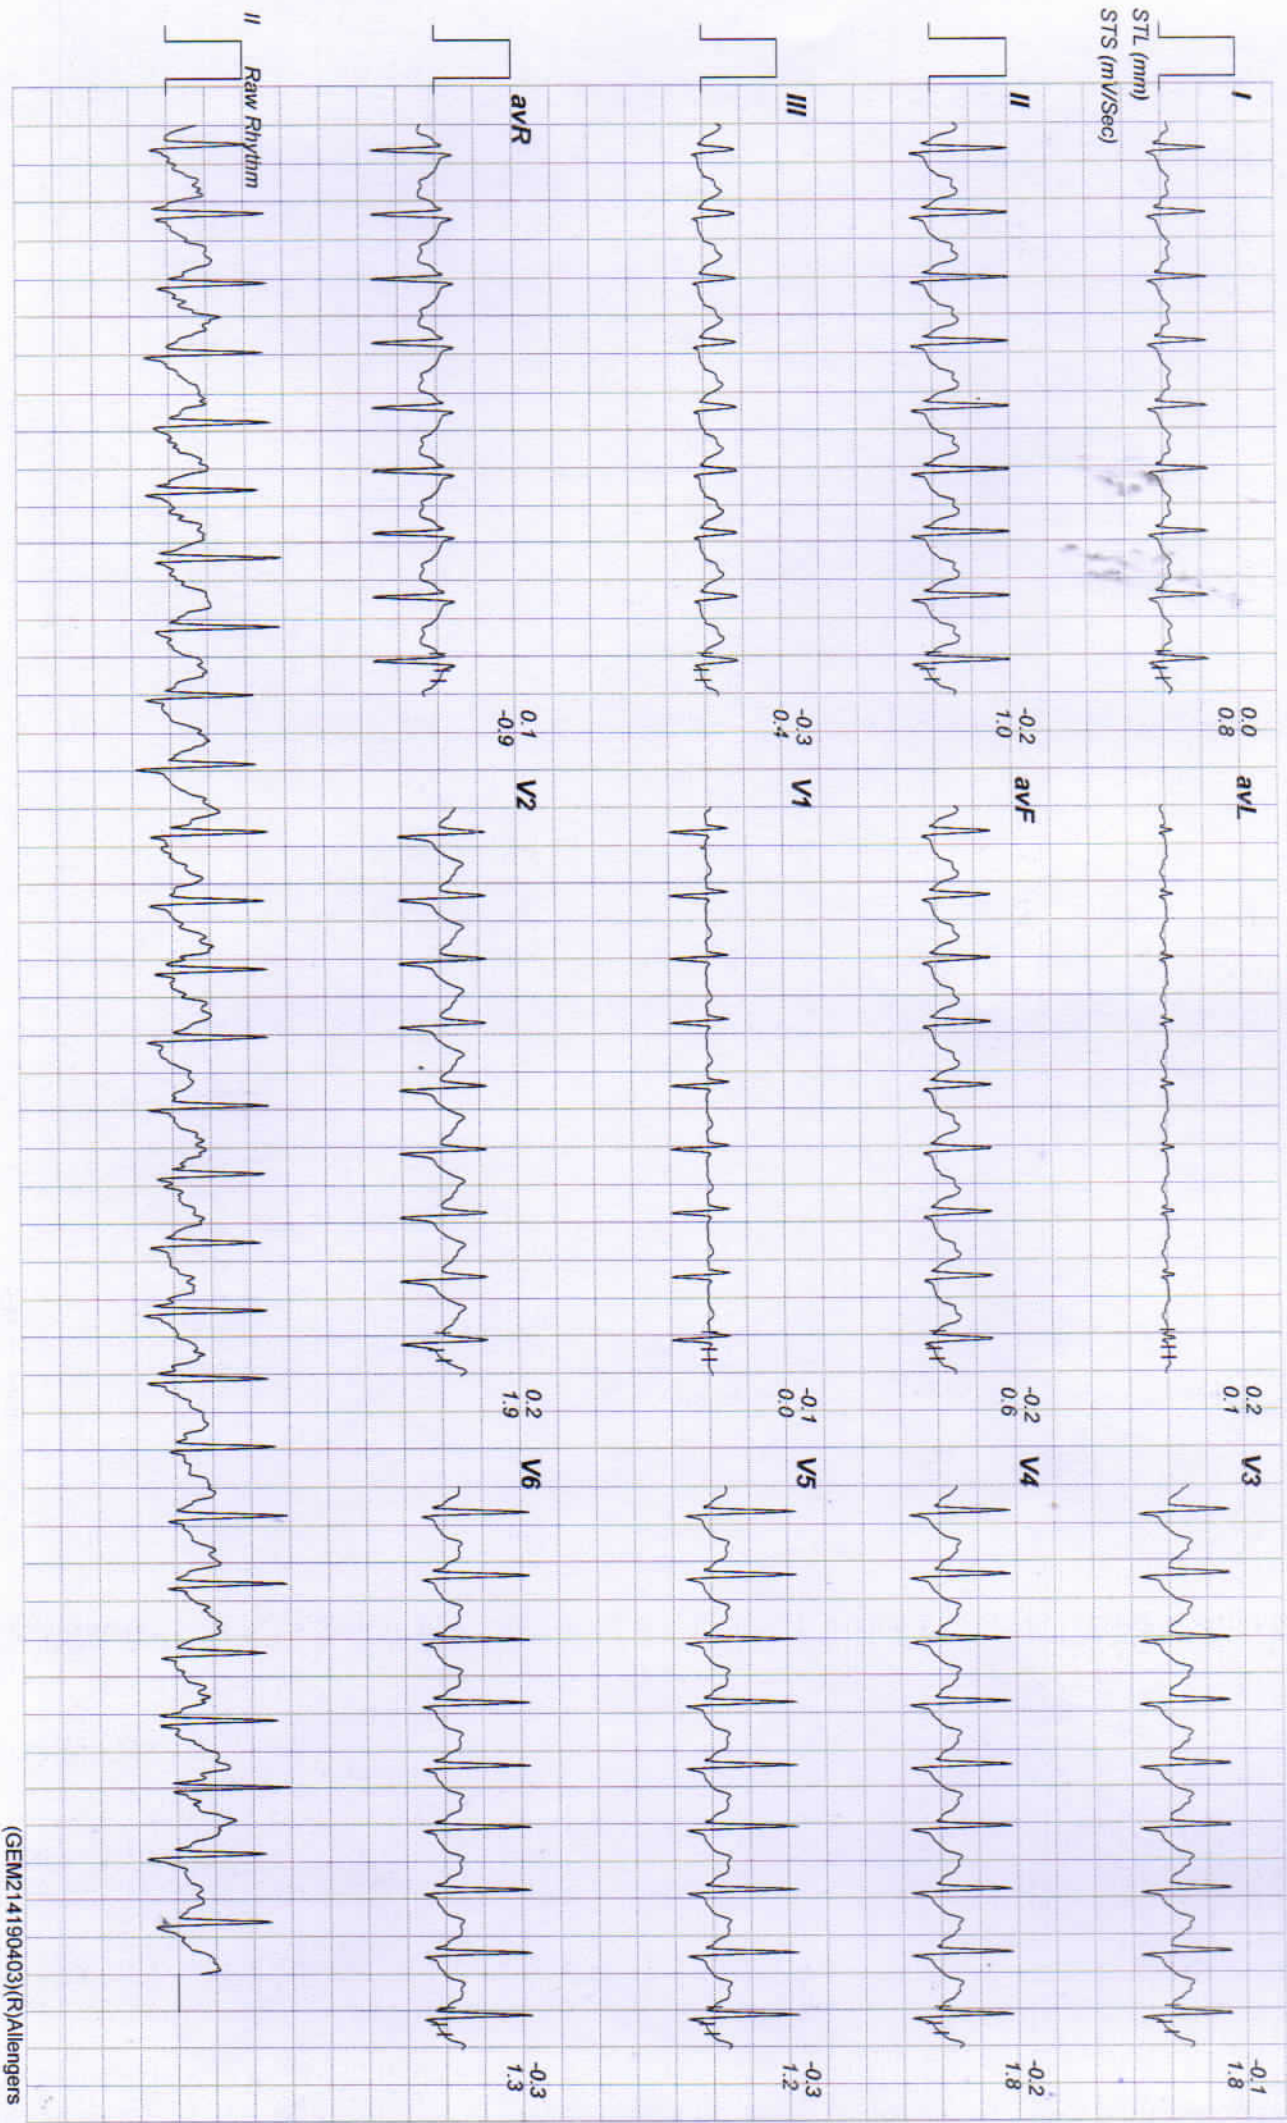 STL (mm)
STS (mV/Sec)
I
0.0
0.8
avL
0.2
0.1
V3
-0.1
1.8
II
-0.2
1.0
avF
-0.2
0.6
V4
-0.2
1.8
III
-0.3
0.4
V1
-0.1
0.0
V5
-0.3
1.2
avR
0.1
-0.9
V2
0.2
1.9
V6
-0.3
1.3
II Raw Rhythm
(GEM214190403)(R)Allengers